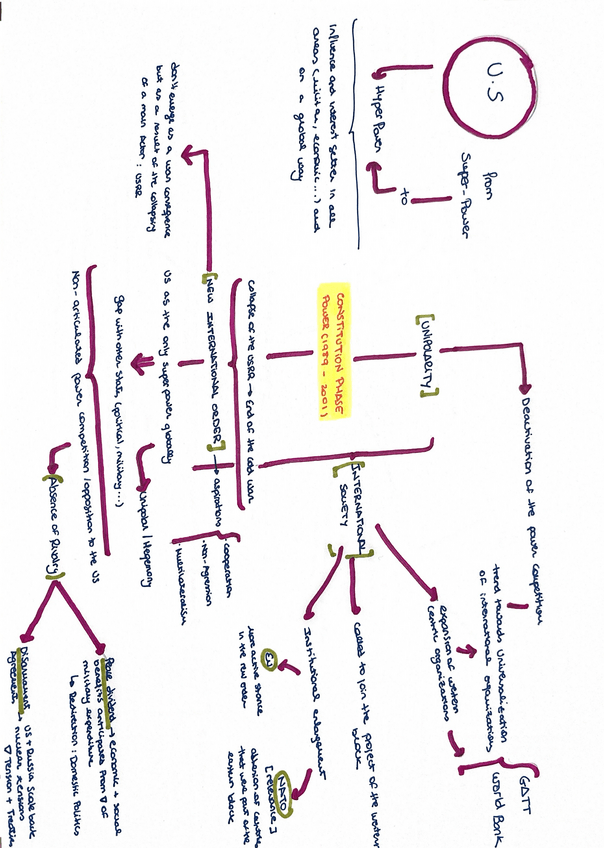 U.S
from
Super-Power
to
HyperPower
influence and interest setter in all
areas (militar, economic...) and
on a global way
[UNIPOLARITY]
Deactivation of the power competition
trend towards Universalization
of international organizations
expansion of western
centric organizations
GATT
World Bank
CONSTITUTION PHASE
POWER (1989 - 2001)
[INTERNATIONAL
SOCIETY]
called to join the project of the western
block
Institutional enlargement
EU
more active stance
in the new order
NATO
[relevance]
adhesion of countries
that were part of the
eastern block
Collapse of the USRR → End of the cold war
[NEW INTERNATIONAL ORDER] → aspirations
· Cooperation
· Non-Agression
· Multilateralism
don't emerge as a war consequence
but as a result of the collapsing
of a main actor: USRR
US as the only super power globally
Unipolar / Hegemony
gap with other States (political, military...)
Non-articulated power competition / opposition to the US
(Absence of Rivalry)
Peace dividend → economic + social
benefits anticipated from ∇ of
military expenditure
↳ Redirection: Domestic Politics
Disarmament US + Russia Scale back
Agreements → nuclear tensions
∇ Tension + Treaties